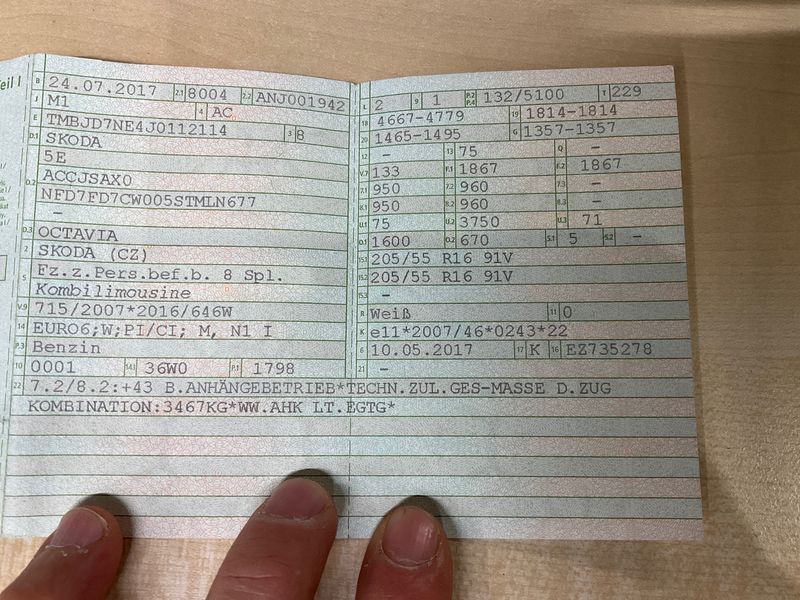 Teil I
B 24.07.2017 2.1 8004 2.2 ANJ001942
J M1 4 AC
E TMBJD7NE4J0112114 3 8
D.1 SKODA
5E
D.2 ACCJSAX0
NFD7FD7CW005STMLN677
–
D.3 OCTAVIA
2 SKODA (CZ)
5 Fz.z.Pers.bef.b. 8 Spl.
Kombilimousine
V.9 715/2007*2016/646W
14 EURO6;W;PI/CI; M, N1 I
P.3 Benzin
10 0001 14.1 36W0 P.1 1798
22 7.2/8.2:+43 B.ANHÄNGEBETRIEB*TECHN.ZUL.GES-MASSE D.ZUG
KOMBINATION:3467KG*WW.AHK LT.EGTG*
L 2 9 1 P.2 P.4 132/5100 T 229
18 4667-4779 19 1814-1814
20 1465-1495 G 1357-1357
12 – 13 75 Q –
V.7 133 F.1 1867 F.2 1867
7.1 950 7.2 960 7.3 –
8.1 950 8.2 960 8.3 –
U.1 75 U.2 3750 U.3 71
O.1 1600 O.2 670 S.1 5 S.2 –
15.1 205/55 R16 91V
15.2 205/55 R16 91V
15.3 –
R Weiß 11 0
K e11*2007/46*0243*22
6 10.05.2017 17 K 16 EZ735278
21 –